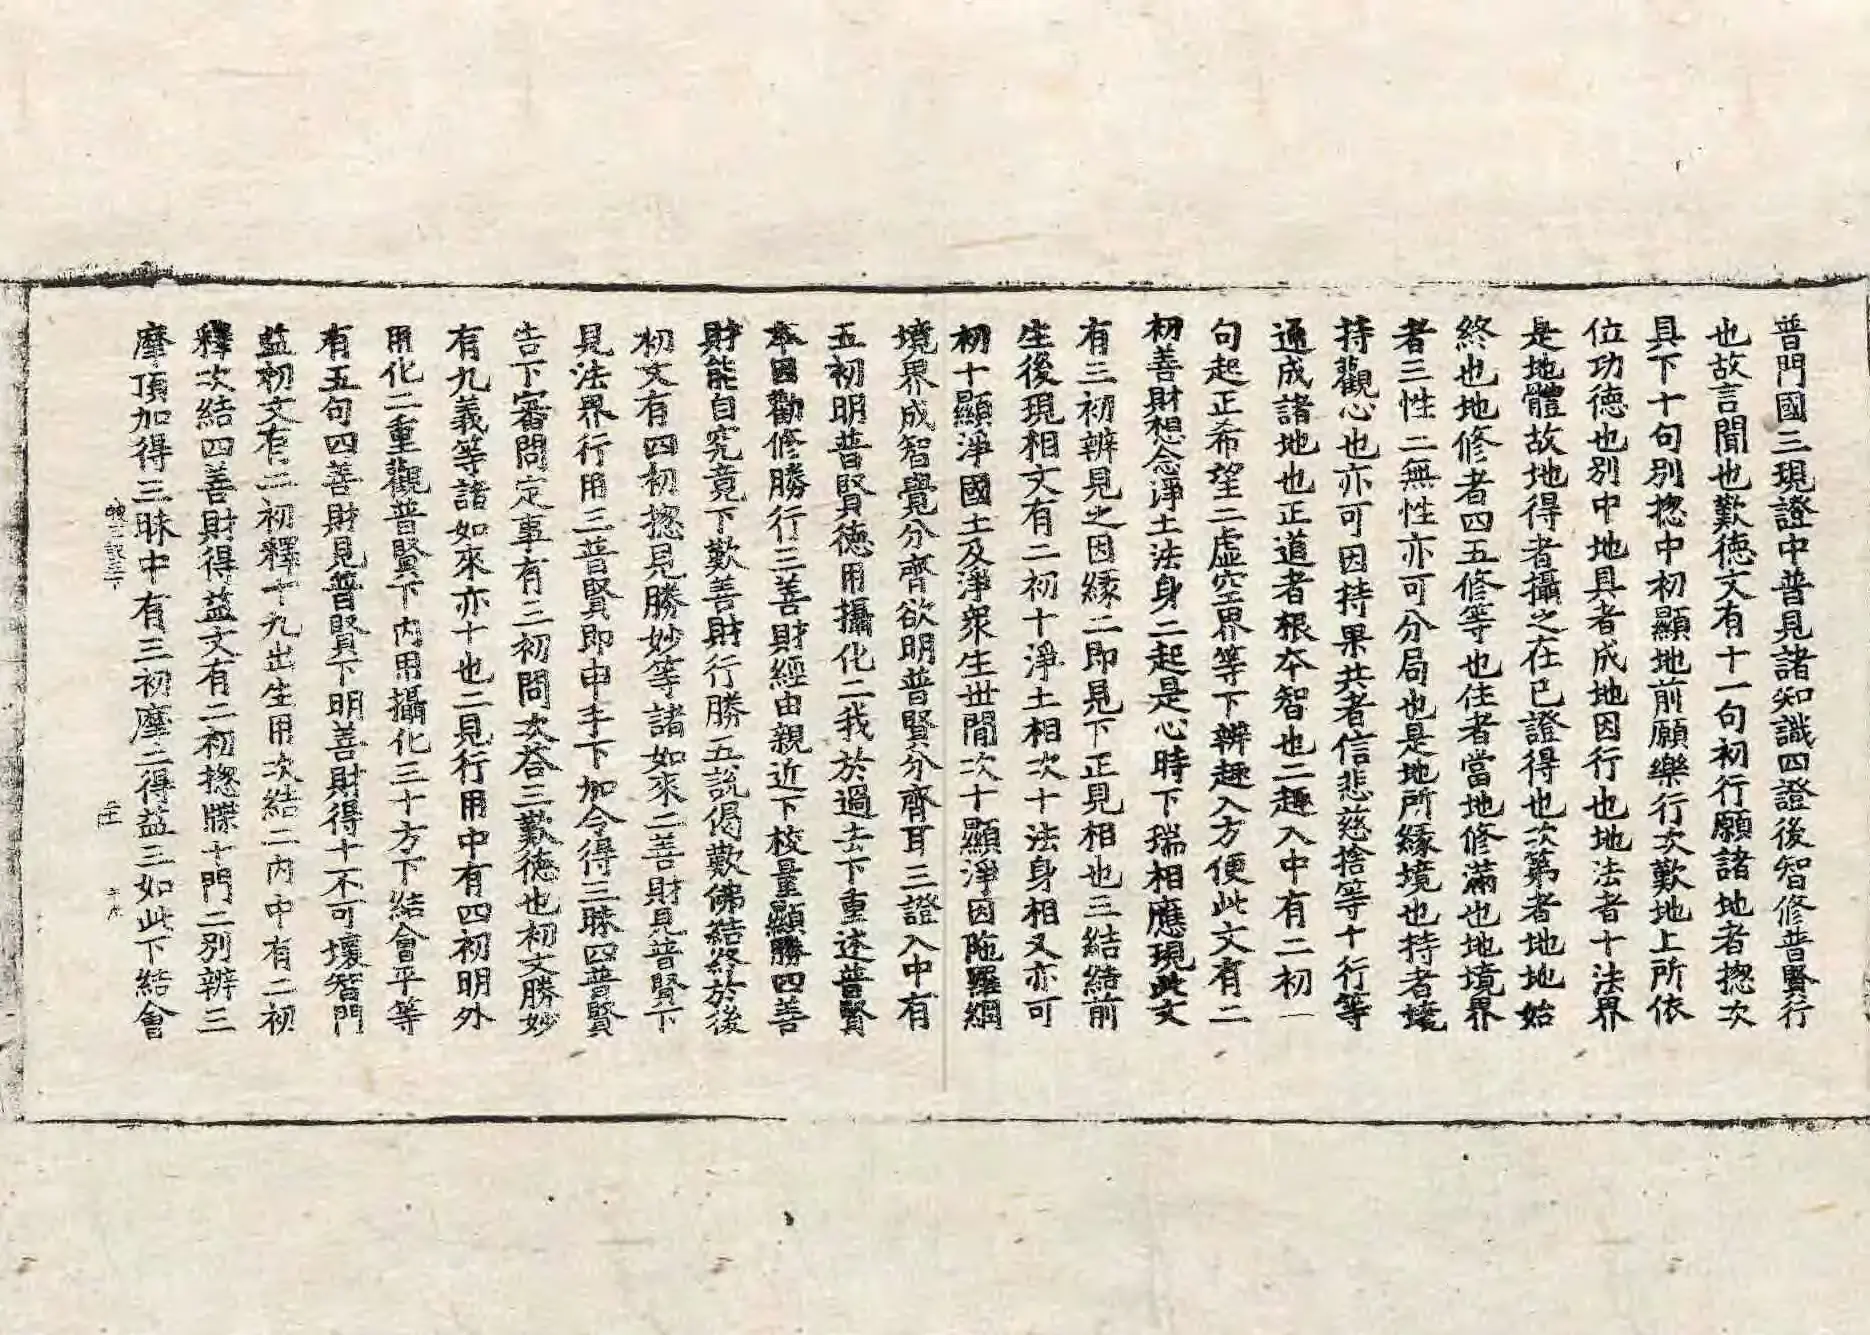 普門國三現證中普見諸知識四證後智修普賢行
也故言聞也歎德文有十一句初行願諸地者揔次
具下十句別揔中初顯地前願樂行次歎地上所依
位功德也別中地具者成地因行也地法者十法界
是地體故地得者攝之在已證得也次第者地地始
終也地修者四五修等也住者當地修滿也地境界
者三性二無性亦可分局也是地所縁境也持者境
持觀心也亦可因持果共者信悲慈捨等十行等
通成諸地也正道者根本智也二趣入中有二初一
句起正希望二虛空界等下辨趣入方便此文有二
初善財想念淨土法身二起是心時下瑞相應現此文
有三初辨見之因縁二即見下正見相也三結結前
生後現相文有二初十淨土相次十法身相又亦可
初十顯淨國土及淨衆生世間次十顯淨因陁羅綱
境界成智覺分齊欲明普賢分齊耳三證入中有
五初明普賢德用攝化二我於過去下重述普賢
本因勸修勝行三善財經由親近下校量顯勝四善
財能自究竟下歎善財行勝五說偈歎佛結終於後
初文有四初揔見勝妙等諸如來二善財見普賢下
見法界行用三普賢即申手下加令得三昧四普賢
告下審問定事有三初問次荅三歎德也初文勝妙
有九義等諸如來亦十也二見行用中有四初明外
用化二重觀普賢下內用攝化三十方下結會平等
有五句四善財見普賢下明善財得十不可壞智門
益初文有二初釋十九出生用次結二內中有二初
釋次結四善財得益文有二初揔牒十門二別辨三
摩頂加得三昧中有三初摩二得益三如此下結會